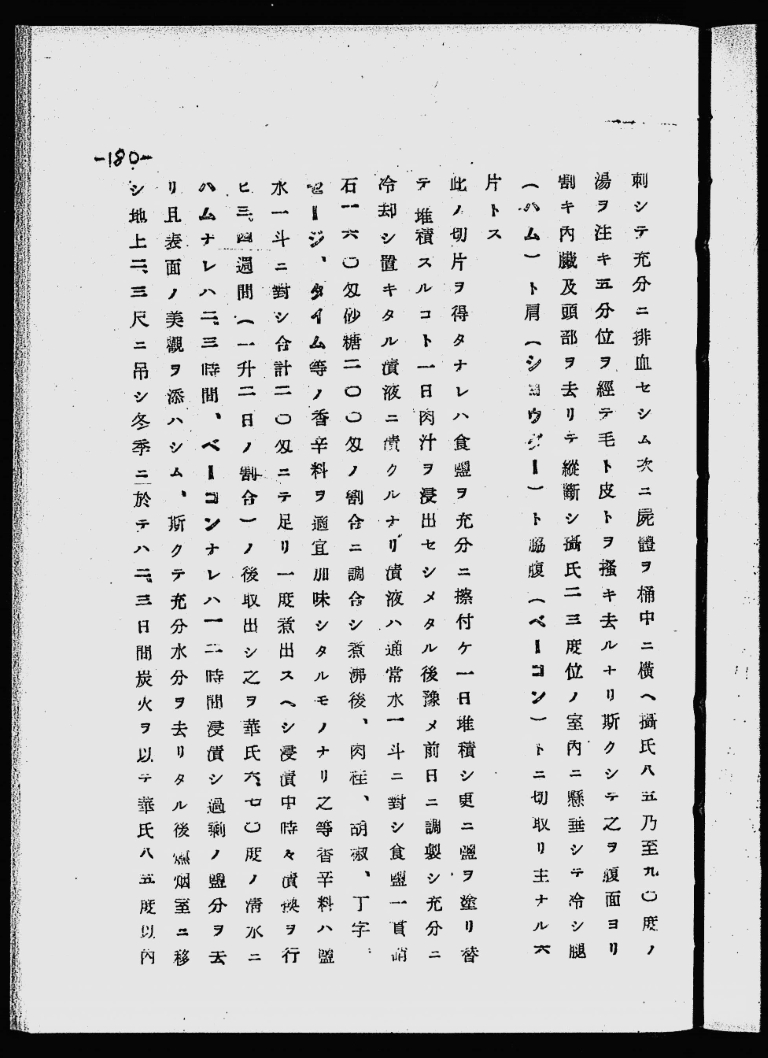 -180-
刺シテ充分ニ排血セシム次ニ屍體ヲ桶中ニ横ヘ攝氏八五乃至九〇度ノ
湯ヲ注キ五分位ヲ經テ毛ト皮トヲ掻キ去ルナリ斯クシテ之ヲ腹面ヨリ
割キ內臟及頭部ヲ去リテ縱斷シ攝氏二三度位ノ室內ニ懸垂シテ冷シ腿
(ハム)ト肩(シヨウダー)ト脇腹(ベーコン)トニ切取リ主ナル六
片トス
此ノ切片ヲ得タナレハ食鹽ヲ充分ニ擦付ケ一日堆積シ更ニ鹽ヲ塗リ替
テ堆積スルコト一日肉汁ヲ浸出セシメタル後豫メ前日ニ調製シ充分ニ
冷却シ置キタル漬液ニ漬クルナリ漬液ハ通常水一斗ニ對シ食鹽一貫硝
石一六〇匁砂糖二〇〇匁ノ割合ニ調合シ煮沸後、肉桂、胡椒、丁字、
セージ、タイム等ノ香辛料ヲ適宜加味シタルモノナリ之等香辛料ハ鹽
水一斗ニ對シ合計二〇匁ニテ足リ一度煮出スヘシ浸漬中時々漬換ヲ行
ヒ三、四週間(一升二日ノ割合)ノ後取出シ之ヲ華氏六、七〇度ノ淸水ニ
ハムナレハ二、三時間、ベーコンナレハ一二時間浸漬シ過剩ノ鹽分ヲ去
リ且表面ノ美觀ヲ添ハシム、斯クテ充分水分ヲ去リタル後燻烟室ニ移
シ地上二、三尺ニ吊シ冬季ニ於テハ二、三日間炭火ヲ以テ華氏八五度以內